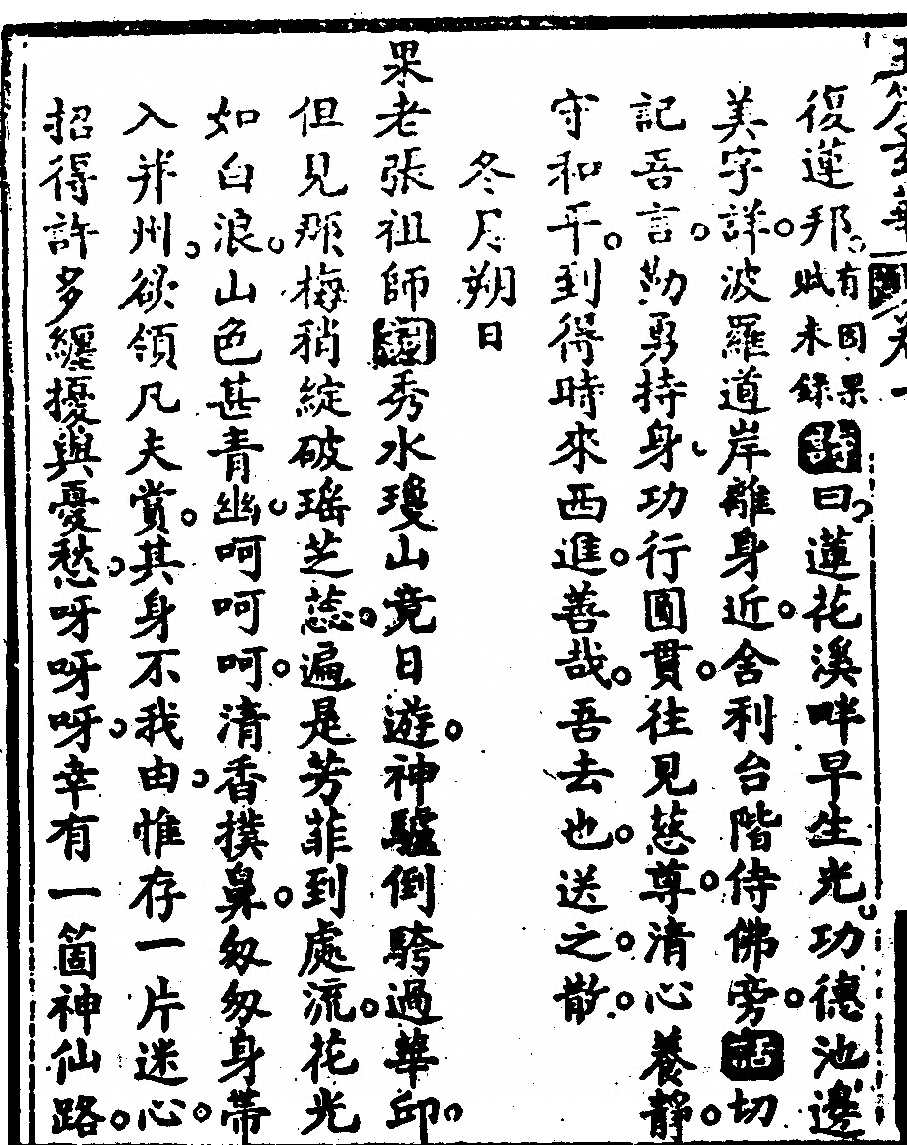 復蓮邦有因果賦未錄詩曰蓮花溪畔早生光功德池邊
美字詳波羅道岸離身近舍利台階侍佛旁切
記吾言勤勇持身功行圓貫往見慈尊清心養靜
守和平到得時來西進善哉吾去也送之散
冬月朔日
果老張祖師秀水瓊山竟日遊神驢倒騎過華邱
但見那梅稍綻破瑶芝蕊遍是芳菲到處流花光
如白浪山色甚青幽呵呵呵清香撲鼻匆匆身帶
入并州欲領凡夫賞其身不我由惟存一片迷心
招得許多纏擾與憂愁呀呀呀幸有一箇神仙路